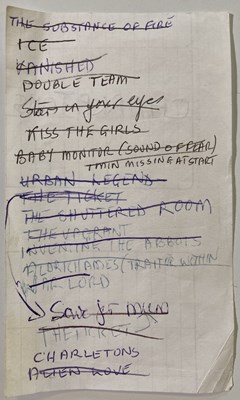 THE SUBSTANCE OF FIRE
ICE
VANISHED
DOUBLE TEAM
Stars in your eyes
KISS THE GIRLS
BABY MONITOR (SOUND OF FEAR)
1 MIN MISSING AT START
URBAN LEGEND
THE TICKET
THE SHUTTERED ROOM
THE VAGRANT
INVENTING THE ABBOTS
(TRAITOR WITHIN
WAR LORD
THE TICKET
CHARLETONS
ALIEN LOVE